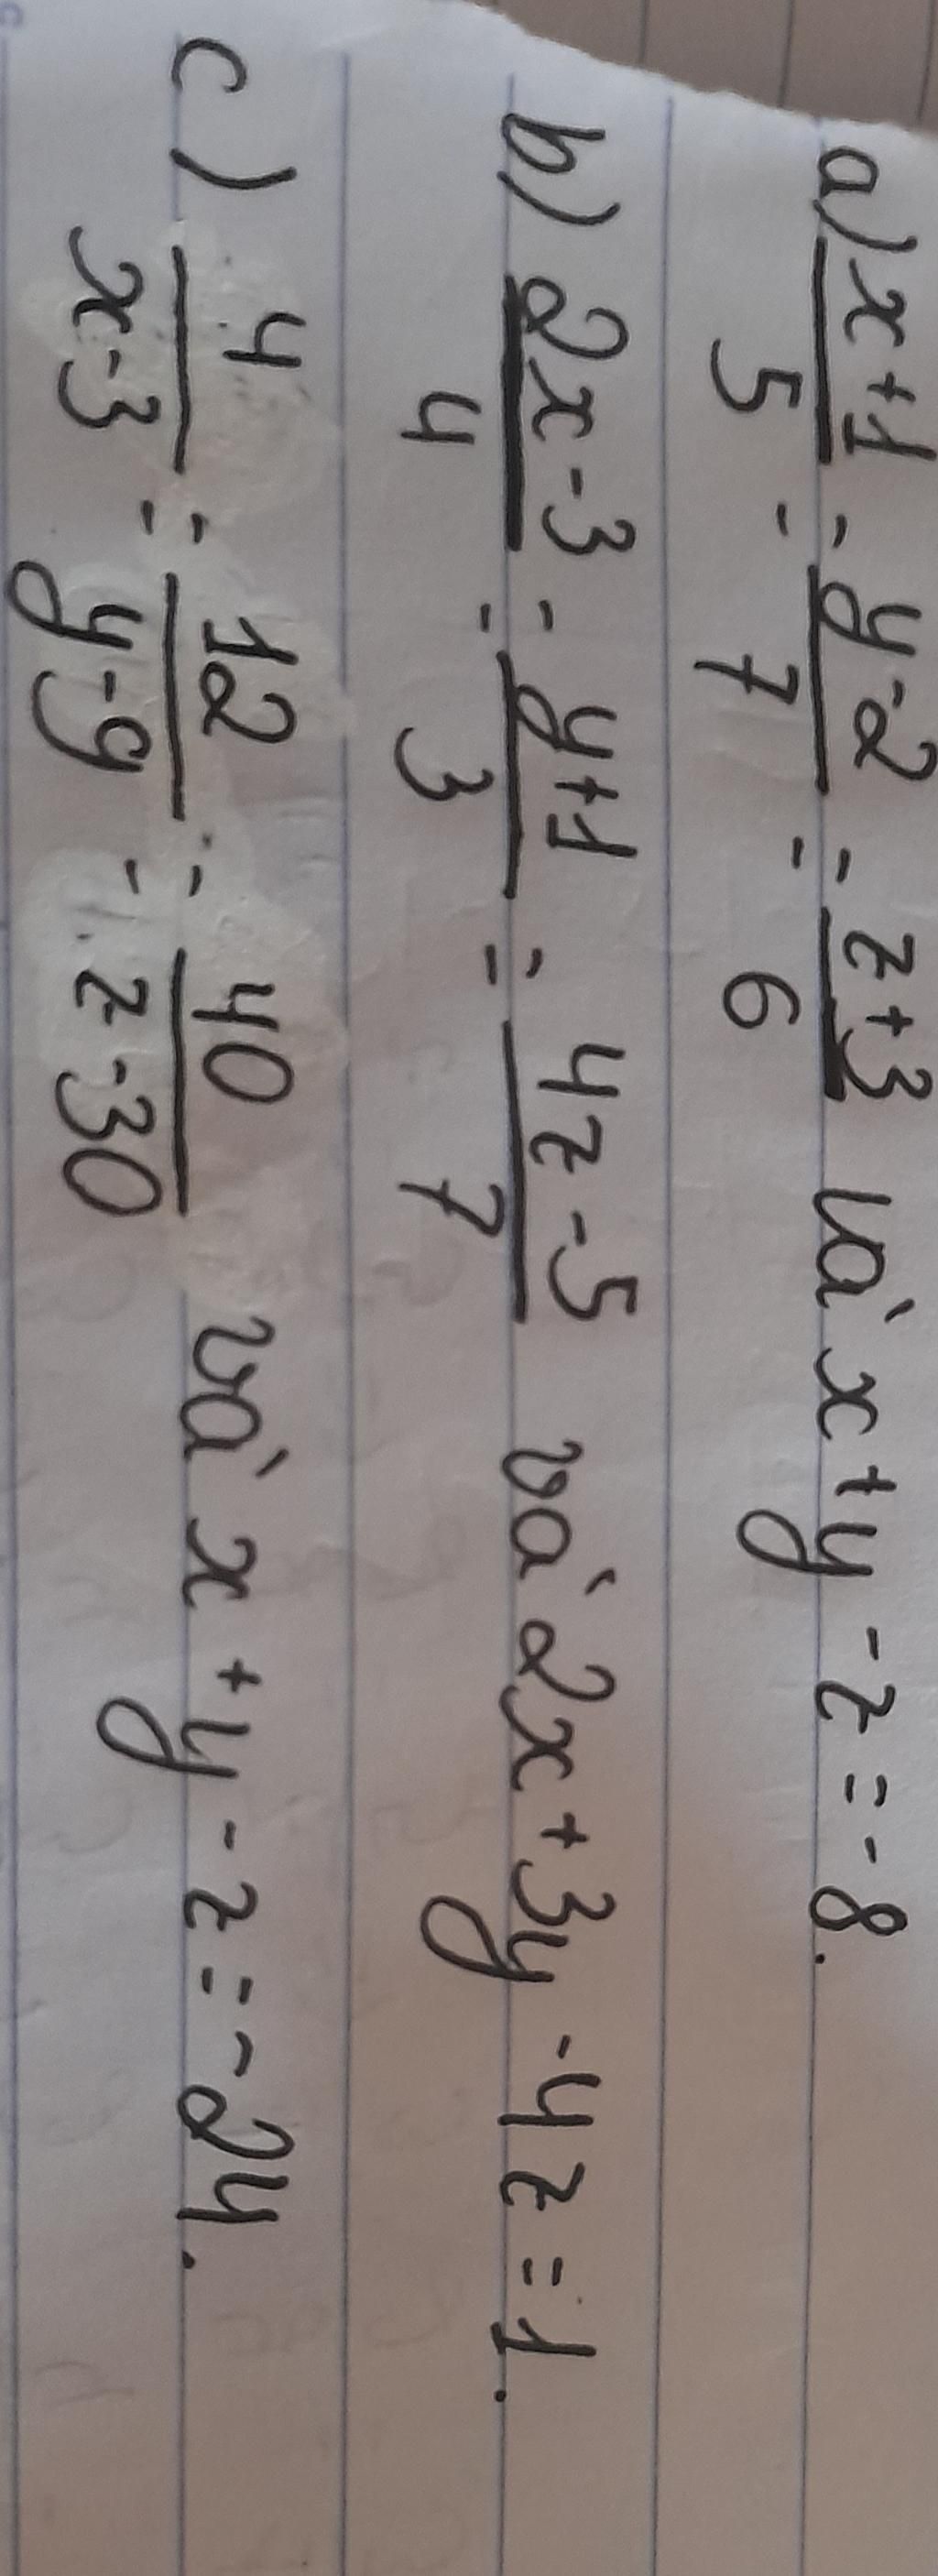 a) (x+1)/5 = (y-2)/7 = (z+3)/6 và x+y-z=-8.
b) (2x-3)/4 = (y+1)/3 = (4z-5)/7 và 2x+3y-4z=1.
c) 4/(x-3) = 12/(y-9) = 40/(z-30) và x+y-z=-24.